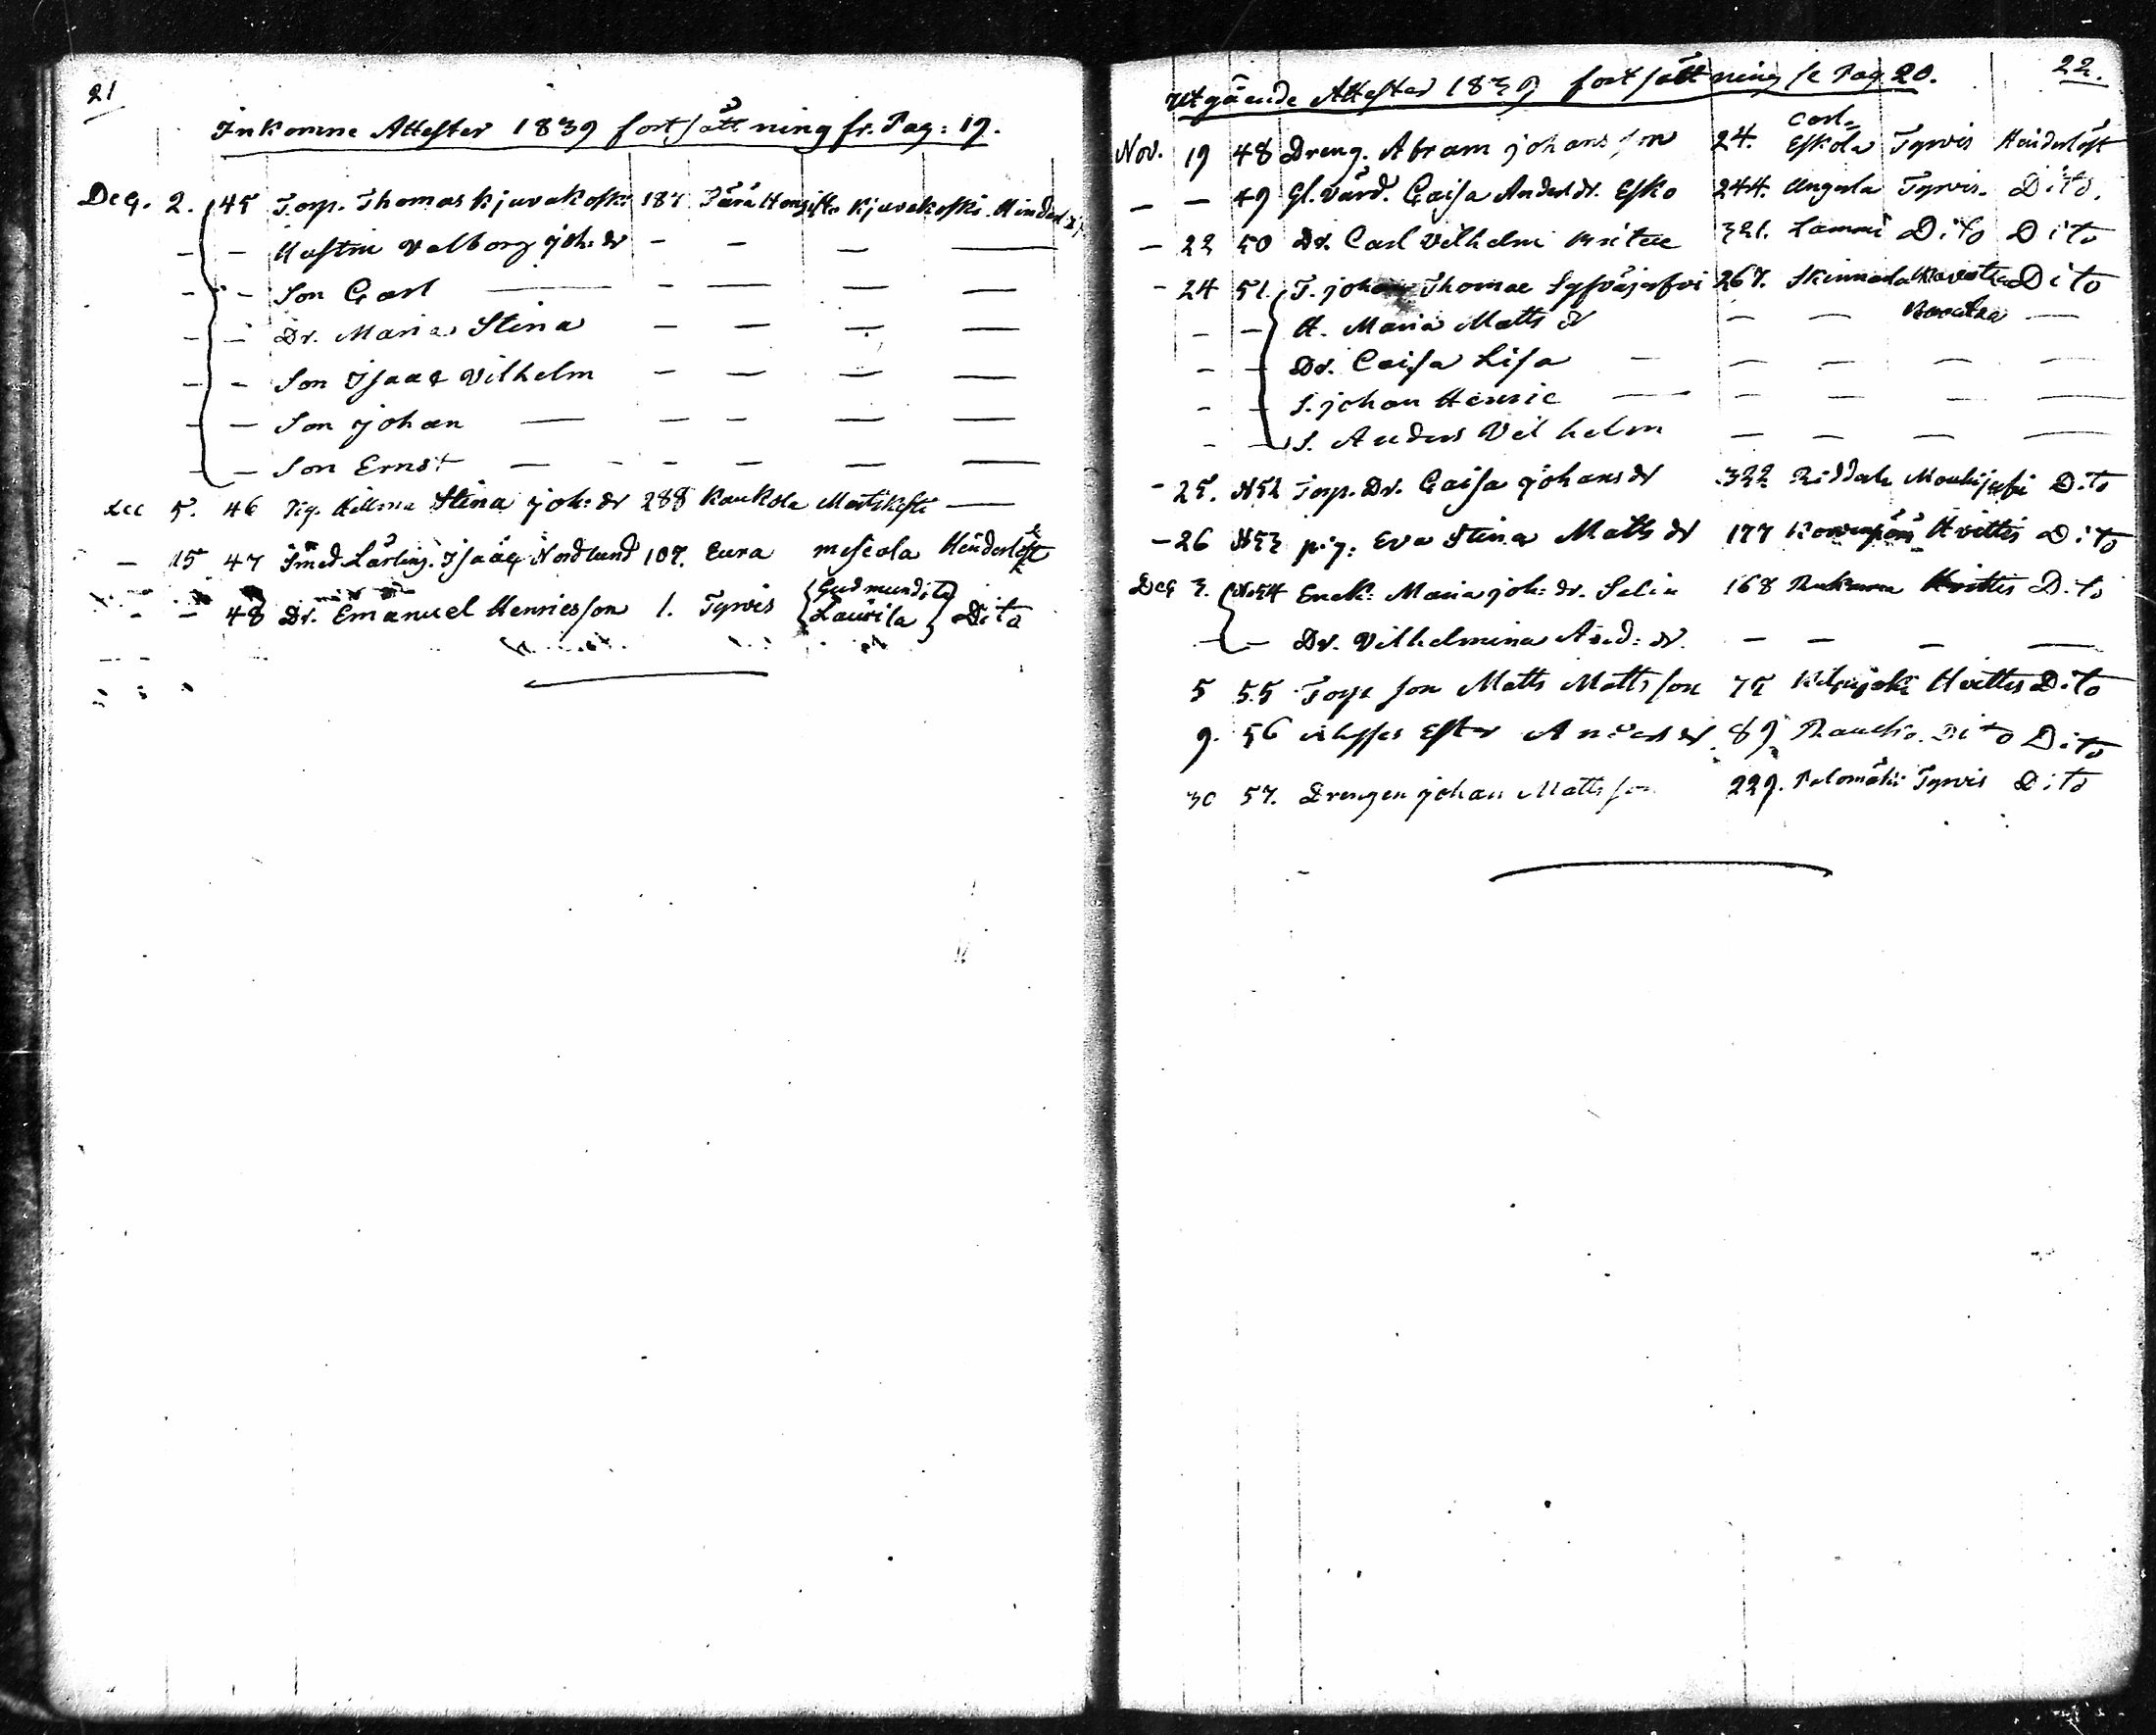 21
Inkomne Attester 1839 fortsättning fr. Pag: 19.
Dec. 2. 45 Torp. Thomas Kjuvakoski 187 Kjuvakoski
- - Hustru Valborg Joh: dr - - - -
- - Son Carl - - - - -
- - Dr. Maria Stina - - - -
- - Son Isaac Vilhelm - - - -
- - Son Johan - - - - -
- - Son Ernst - - - - - -
Dec 5. 46 Pig. Stina Joh: dr 288 Kaukola -
- 15 47 Smed. Lärling. Isaac Nordlund 107. Eura Hinderlöst
- - 48 Dr. Emanuel Henricsson 1. Tyrvis { Gudmundila Laurila } Dito
22.
Utgående Attester 1839 fortsättning se Pag. 20.
Nov. 19 48 Dreng. Abram Johansson 24. Carl= Eskola Tyrvis Hinderlöst
- - 49 Gl. Värd. Caisa Anders dr. Esko 244. Tyrvis. Dito.
- 22 50 Dr. Carl Vilhelm 321. Lammi Dito Dito
- 24 51. T. Johan Thomae 267. Kavatsa Dito
- - H. Maria Matts dr - - Kavatsa -
- - Dr. Caisa Lisa - - - - -
- - S. Johan Henric - - - - -
- - S. Anders Vilhelm - - - -
- 25. N 52 Torp. Dr. Caisa Johans dr 322 Mouhijerfvi Dito
- 26 N 53 pig: Eva Stina Matts dr 177 Hvittis Dito
Dec 3. N 54 Enck: Maria Joh: dr. Selin 168 Hvittis Dito
- - Dr. Vilhelmina And: dr. - - - -
5 55 Torp son Matts Mattsson 75 Hvittis Dito
9. 56 Ester Anders dr 89. Dito Dito
30 57. Drengen Johan Mattsson 229. Palomäki Tyrvis Dito